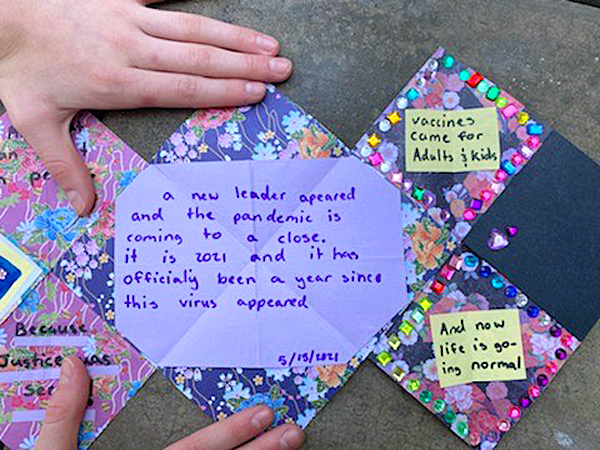 a new leader apeared
and the pandemic is
coming to a close.
it is 2021 and it has
officialy been a year since
this virus appeared
5/15/2021
vaccines
came for
Adults & Kids
And now
life is go-
ing normal
Because
Justice was